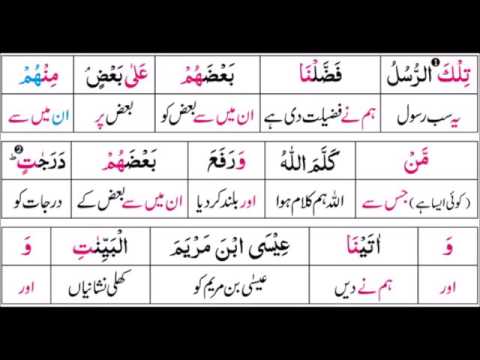 تِلْكَ الرُّسُلُ فَضَّلْنَا بَعْضَهُمْ عَلٰى بَعْضٍ مِنْهُمْ
یہ سب رسول ہم نے فضیلت دی ہے ان میں سے بعض کو بعض پر ان میں سے
مَّنْ كَلَّمَ اللّٰهُ وَرَفَعَ بَعْضَهُمْ دَرَجٰتٍ
(کوئی ایسا ہے) جس سے اللہ ہم کلام ہوا اور بلند کردیا ان میں سے بعض کے درجات کو
وَ اٰتَيْنَا عِيْسَى ابْنَ مَرْيَمَ الْبَيِّنٰتِ وَ
اور ہم نے دیں عیسیٰ بن مریم کو کھلی نشانیاں اور